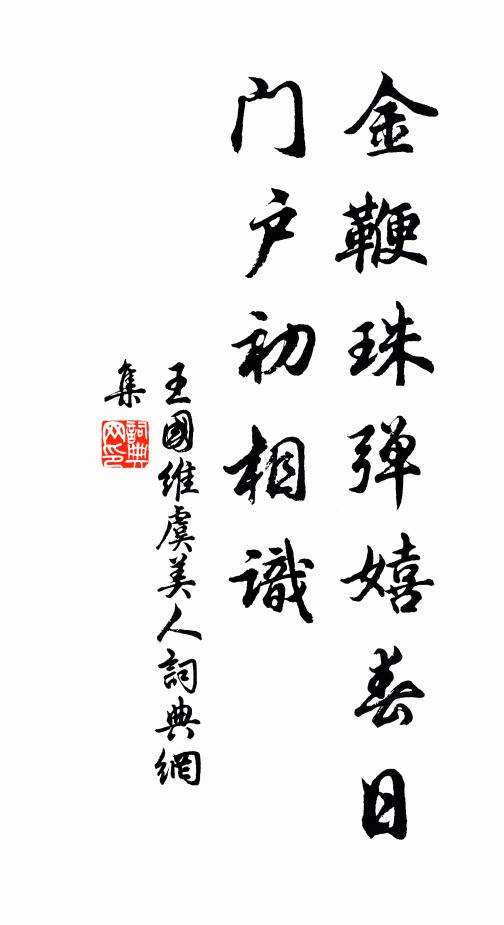 金鞭珠弹嬉春日
门户初相識
王國維虞美人詞典網
集
詞典网印